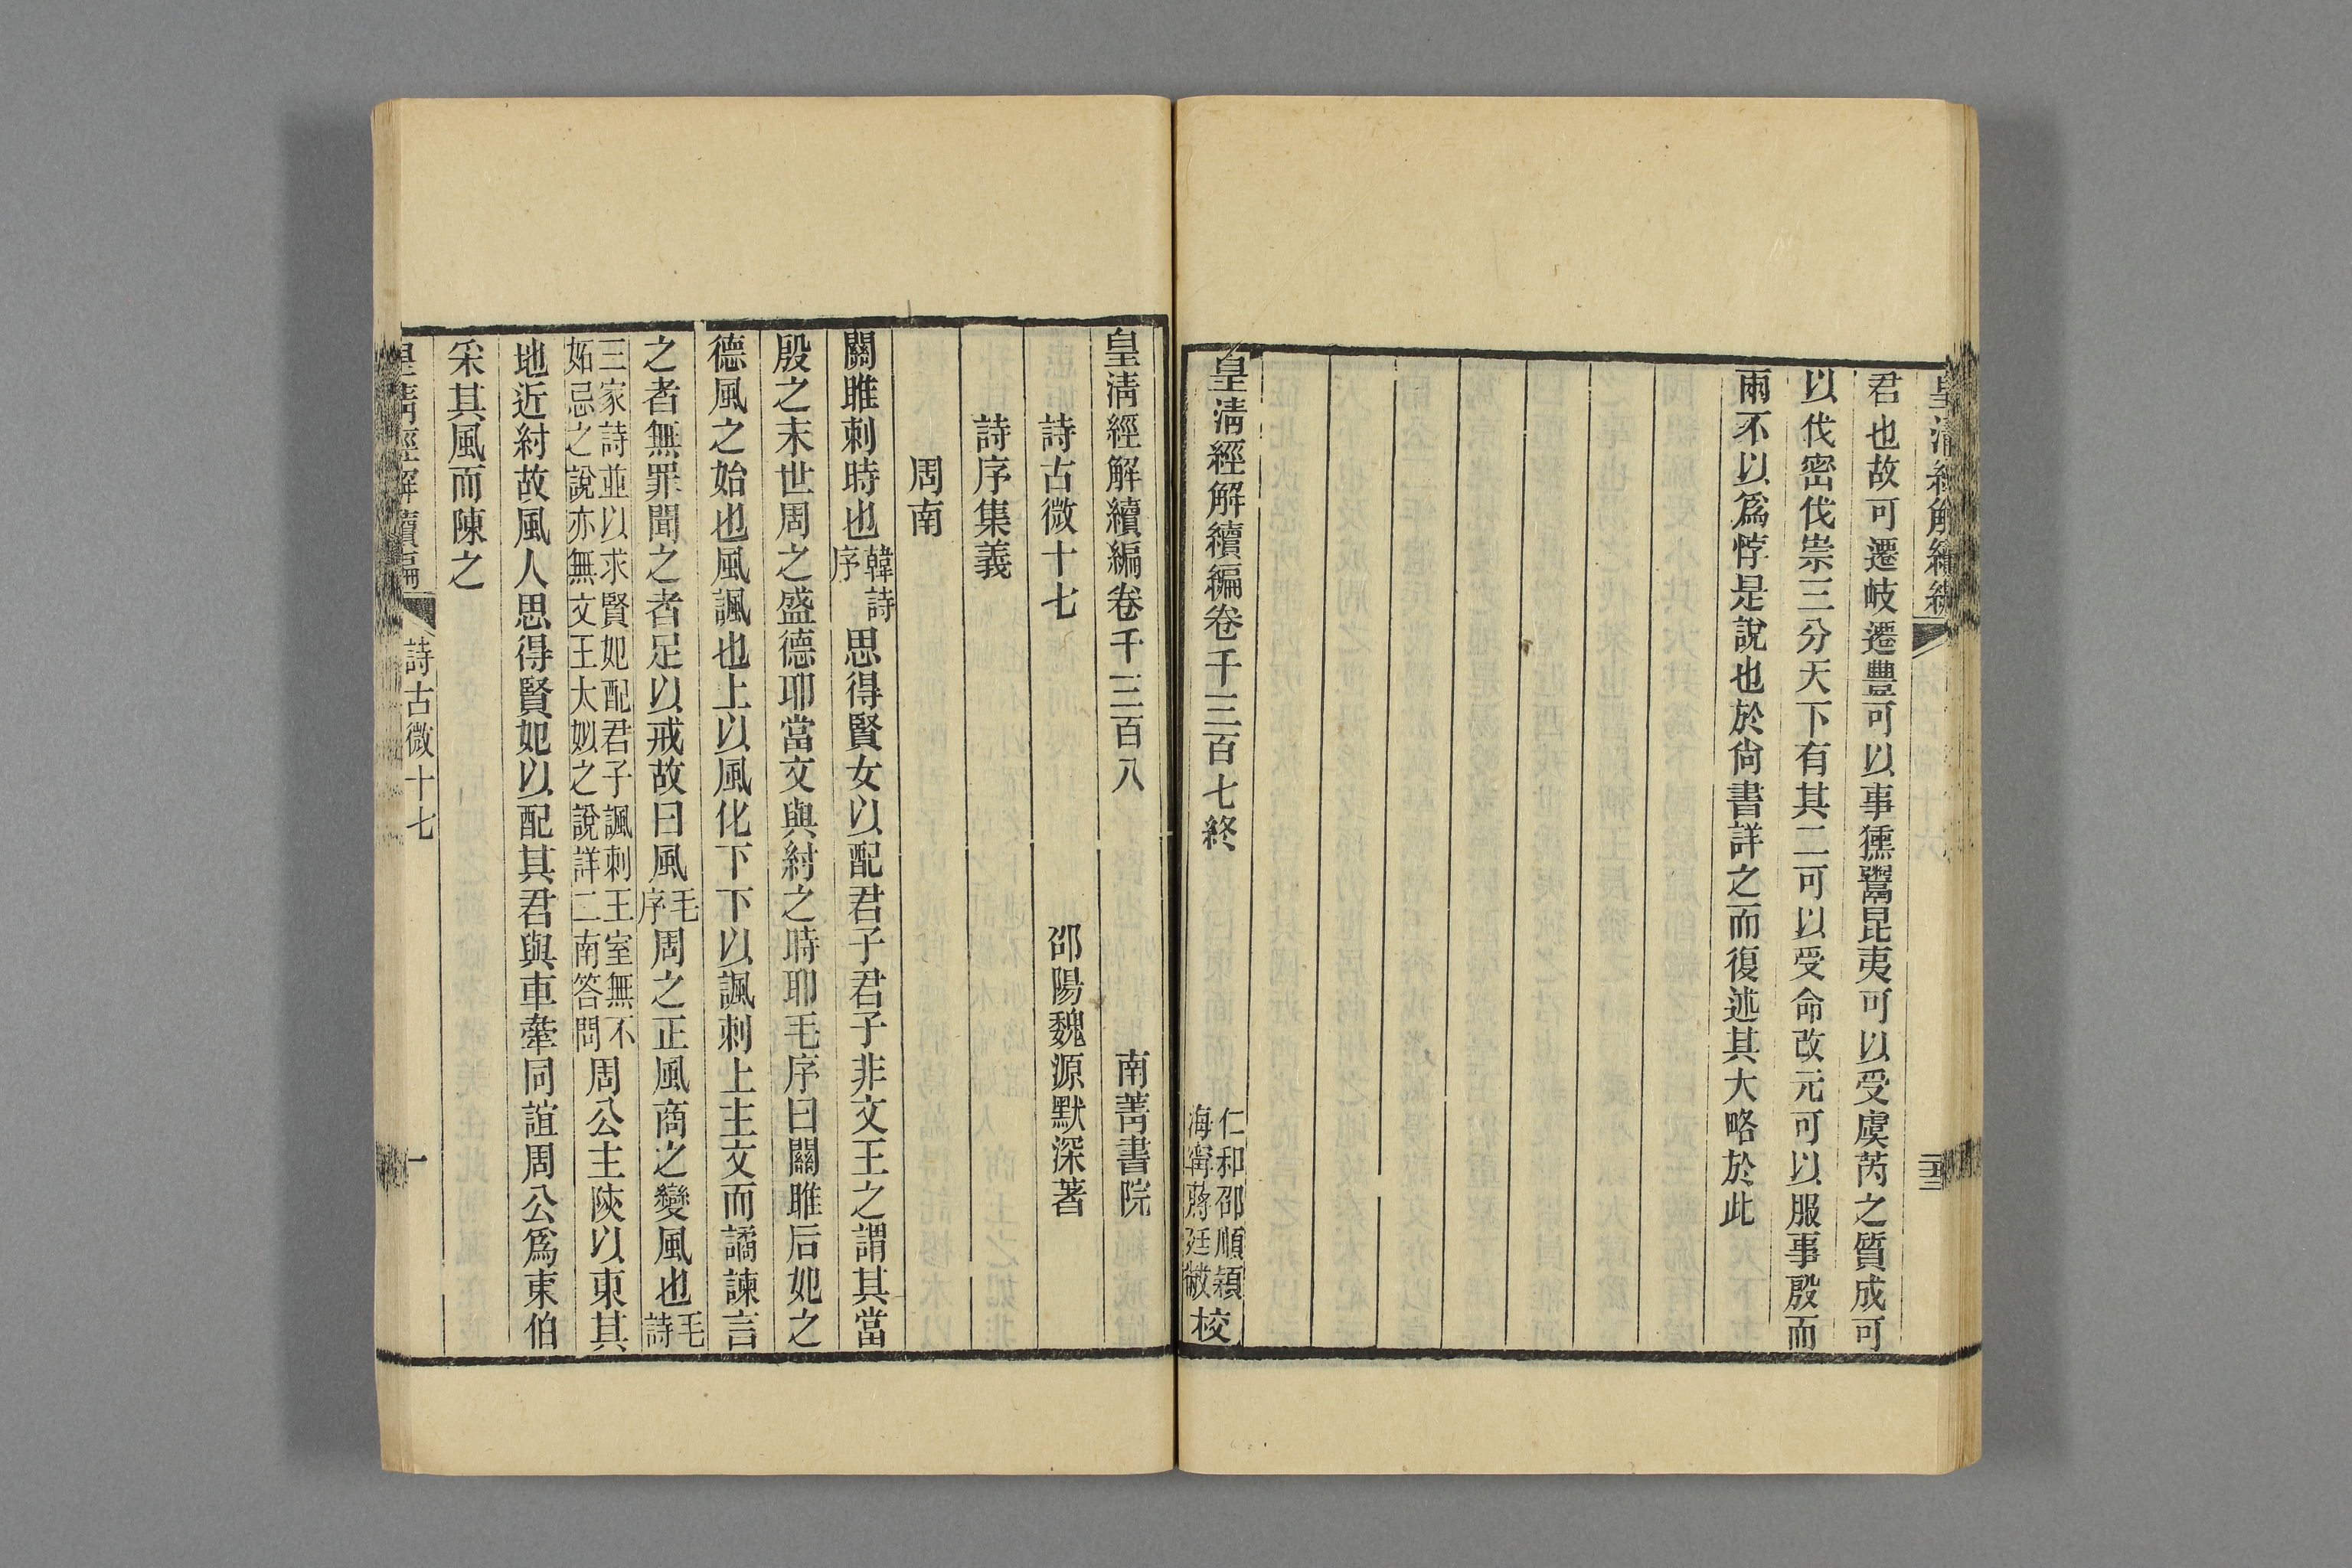 君也故可遷岐遷豐可以事獯鬻昆夷可以受虞芮之質成可
以伐密伐崇三分天下有其二可以受命改元可以服事殷而
兩不以爲悖是說也於尙書詳之而復述其大略於此
皇清經解續編卷千三百七終
仁和邵順穎
海寧蔣廷黻
校
皇清經解續編卷千三百八
南菁書院
詩古微十七
邵陽魏源默深著
詩序集義
周南
關雎刺時也韓詩序思得賢女以配君子君子非文王之謂其當
殷之末世周之盛德耶當文與紂之時耶毛序曰關雎后妃之
德風之始也風諷也上以風化下下以諷刺上主文而譎諫言
之者無罪聞之者足以戒故曰風毛序周之正風商之變風也毛詩
三家詩並以求賢妃配君子諷刺王室無不
妬忌之說亦無文王太姒之說詳二南答問
周公主陝以東其
地近紂故風人思得賢妃以配其君與車舝同誼周公爲東伯
采其風而陳之
皇清經解續編
詩古微十七
一